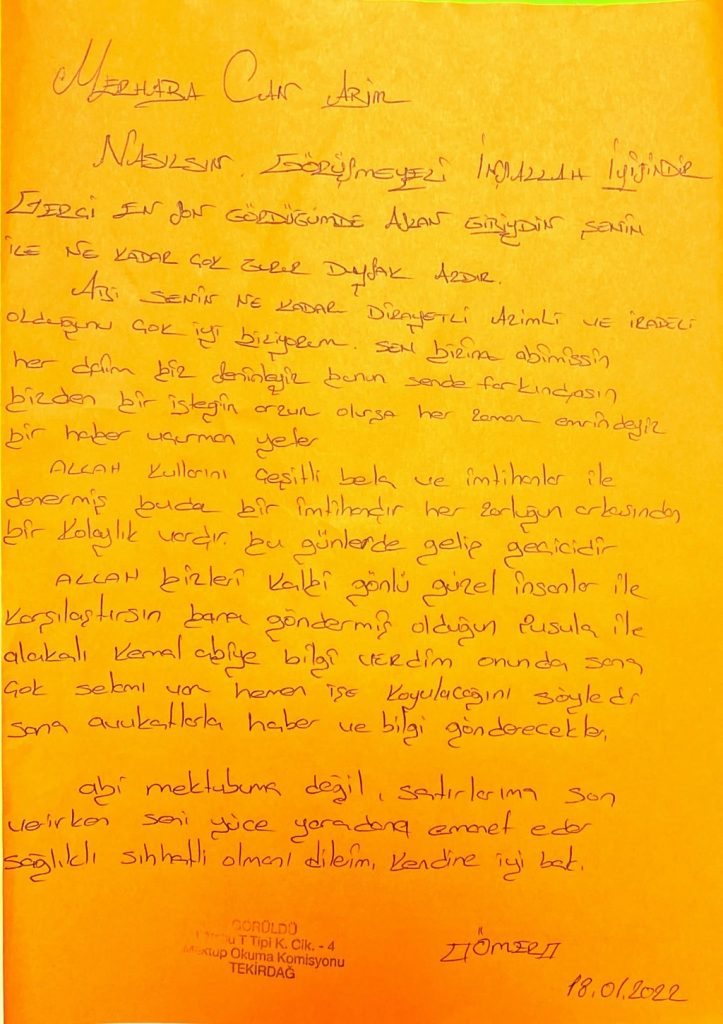 MERHABA CAN ABİM
NASILSIN. GÖRÜŞMEYELİ İNŞALLAH İYİSİNDİR
GERÇİ EN SON GÖRDÜĞÜMDE ASLAN GİBİYDİN SENİN
İLE NE KADAR ÇOK GURUR DUYSAK AZDIR.
ABİ SENİN NE KADAR DİRAYETLİ AZİMLİ VE İRADELİ
OLDUĞUNU ÇOK İYİ BİLİYORUM. SEN BİZİM abimissin
her daim biz seninleyiz bunun sende farkındasın
bizden bir isteğin arzun olursa her zaman emrindeyiz
bir haber uçurman yeter
ALLAH kullarını çeşitli bela ve imtihanlar ile
denermiş buda bir imtihandır her zorluğun arkasından
bir kolaylık vardır. bu günlerde gelip geçicidir
ALLAH bizleri kalbi gönlü güzel insanlar ile
karşılaştırsın bana göndermiş olduğun pusula ile
alakalı kemal abiye bilgi verdim onunda sana
çok selamı var hemen işe koyulacağını söyledi
sana avukatlarla haber ve bilgi gönderecekler.
abi mektubuma değil, satırlarıma son
verirken seni yüce yaradana emanet eder
sağlıklı sıhhatli olmanı dilerim, kendine iyi bak.
GÖRÜLDÜ
T Tipi K. Cik. - 4
Mektup Okuma Komisyonu
TEKİRDAĞ
ÖMER
18.01.2022